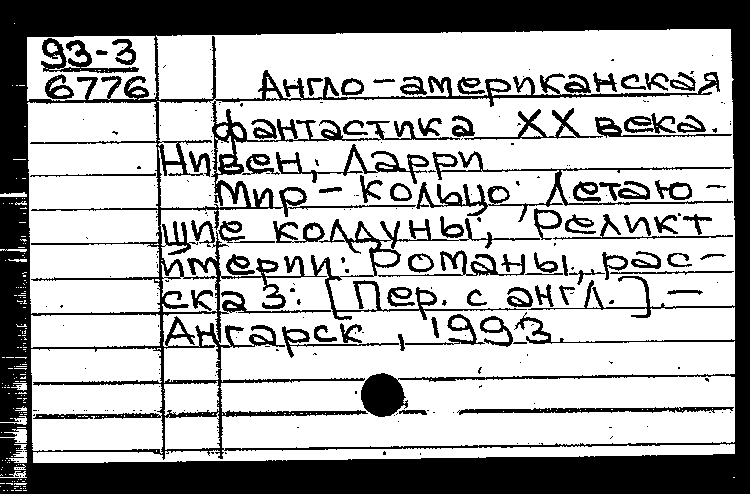 93-3
6776
Англо-американская
фантастика XX века.
Нивен, Ларри
Мир-кольцо; Летаю-
щие колдуны; Реликт
империи: Романы, рас-
сказ: [Пер. с англ.].—
Ангарск, 1993.